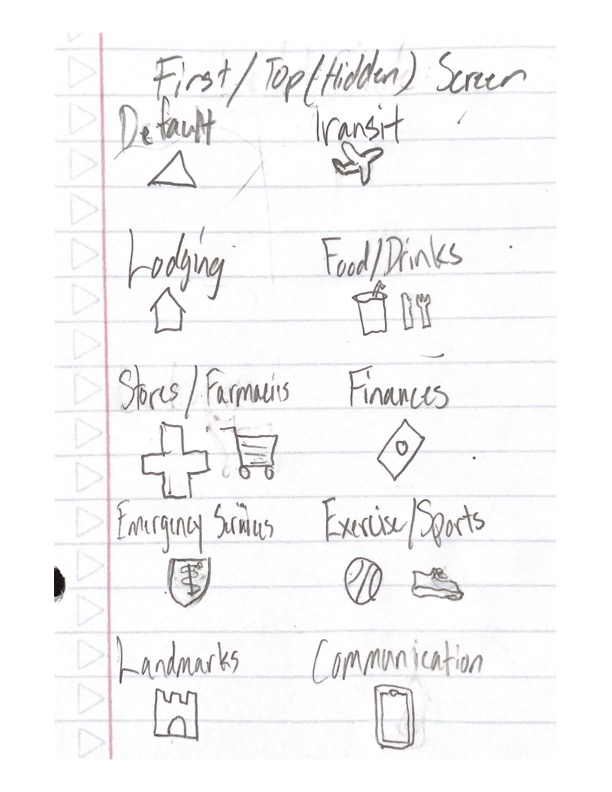 First/Top(Hidden) Screen
Default Transit
Lodging Food/Drinks
Stores / Farmaciis Finances
Emergency Exercise/Sports
Landmarks Communication